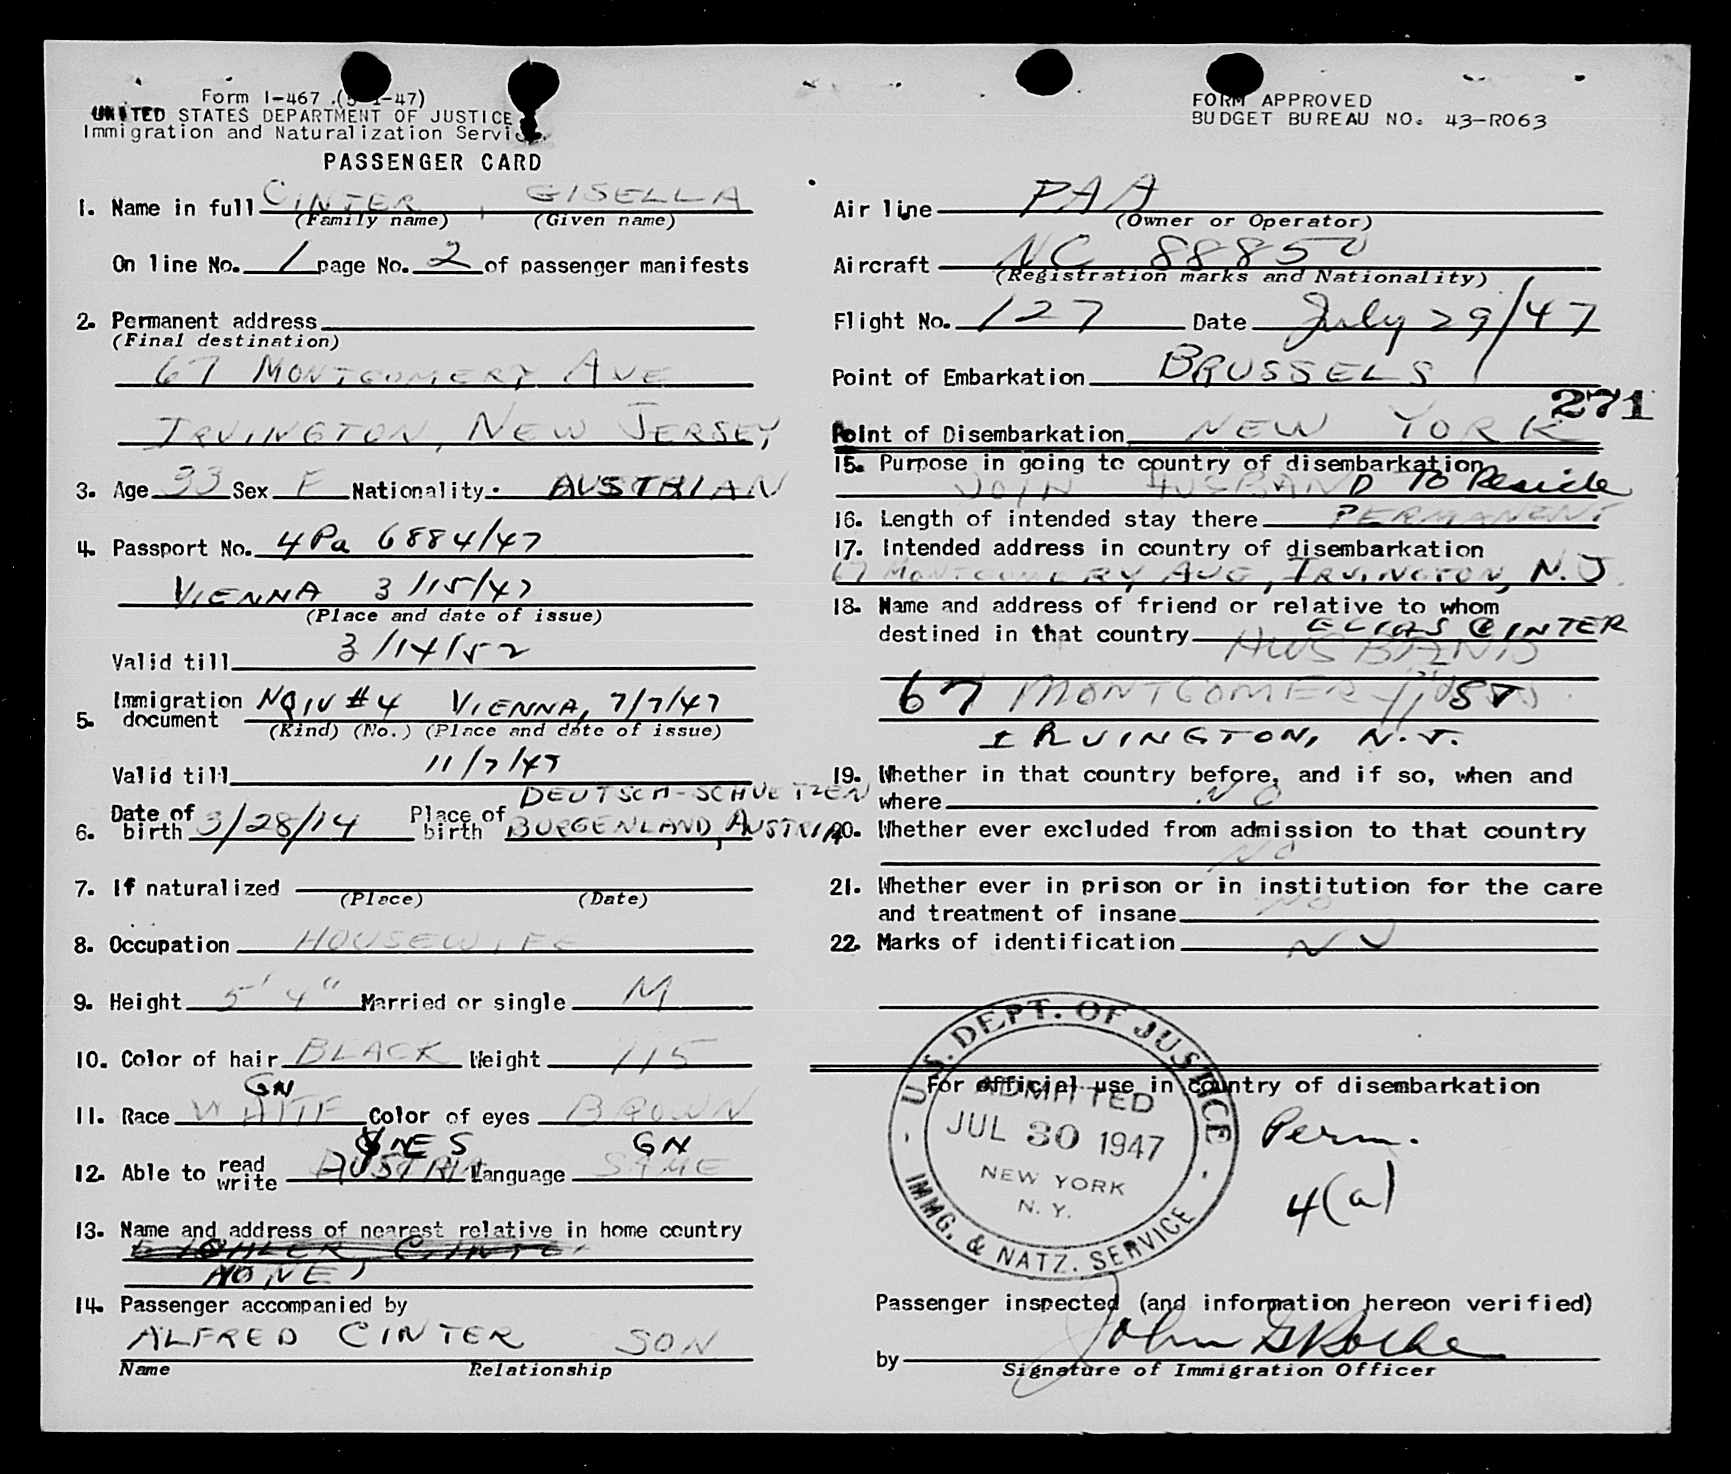 Form I-467 (5-1-47)
UNITED STATES DEPARTMENT OF JUSTICE
Immigration and Naturalization Service
PASSENGER CARD
1. Name in full CINTER, GISELLA
(Family name) (Given name)
On line No. 1 page No. 2 of passenger manifests
2. Permanent address
(Final destination)
67 MONTGOMERY AVE
IRVINGTON, NEW JERSEY
3. Age 33 Sex F Nationality AUSTRIAN
4. Passport No. 4Pa 6884/47
VIENNA 3/15/47
(Place and date of issue)
Valid till 3/14/52
5. Immigration document NQIV #4 VIENNA, 7/7/47
(Kind) (No.) (Place and date of issue)
Valid till 11/7/47
6. Date of birth 3/28/14 Place of birth DEUTSCH-SCHUETZEN
BURGENLAND, AUSTRIA
7. If naturalized
(Place) (Date)
8. Occupation HOUSEWIFE
9. Height 5' 4" Married or single M
10. Color of hair BLACK Weight 115
GN
11. Race WHITE Color of eyes BROWN
YES GN
12. Able to read write AUSTRIA Language SAME
13. Name and address of nearest relative in home country
NONE
14. Passenger accompanied by
ALFRED CINTER SON
Name Relationship
FORM APPROVED
BUDGET BUREAU NO. 43-R063
Air line PAA
(Owner or Operator)
Aircraft NC 88850
(Registration marks and Nationality)
Flight No. 127 Date July 29/47
Point of Embarkation BRUSSELS
271
Point of Disembarkation NEW YORK
15. Purpose in going to country of disembarkation
JOIN HUSBAND To Reside
16. Length of intended stay there PERMANENT
17. Intended address in country of disembarkation
67 MONTGOMERY AVE, IRVINGTON, N.J.
18. Name and address of friend or relative to whom
destined in that country ELIAS CINTER
HUSBAND
67 MONTGOMERY ST
IRVINGTON, N.J.
19. Whether in that country before, and if so, when and
where NO
20. Whether ever excluded from admission to that country
NO
21. Whether ever in prison or in institution for the care
and treatment of insane NO
22. Marks of identification NO
For official use in country of disembarkation
U.S. DEPT. OF JUSTICE
ADMITTED
JUL 30 1947
NEW YORK
N. Y.
IMMG. & NATZ. SERVICE
Perm.
4(a)
Passenger inspected (and information hereon verified)
by John
Signature of Immigration Officer